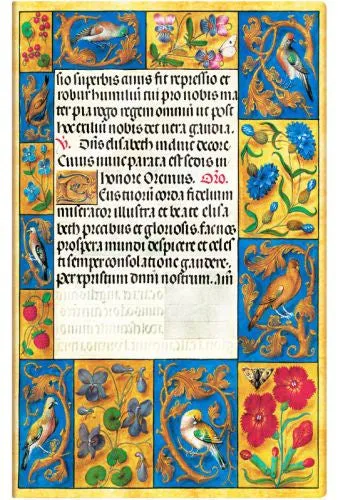 sio superbis cuius fit repressio et
robur humilium tui pro nobis ma
ter pia rogo regem omniū ut post
hoc exiliū nobis det vera gaudia.
V. elisabeth decore.
Cuius nunc parata est sedis in
honore Oremus. Oro.
Deus tuorū corda fidelium
miserator illustra et beate elisa
beth precibus et gloriosis. fac nos
prospera mundi despicere et celes
ti semper consolatione gaudere.
per xpistum dnm nostrum. am